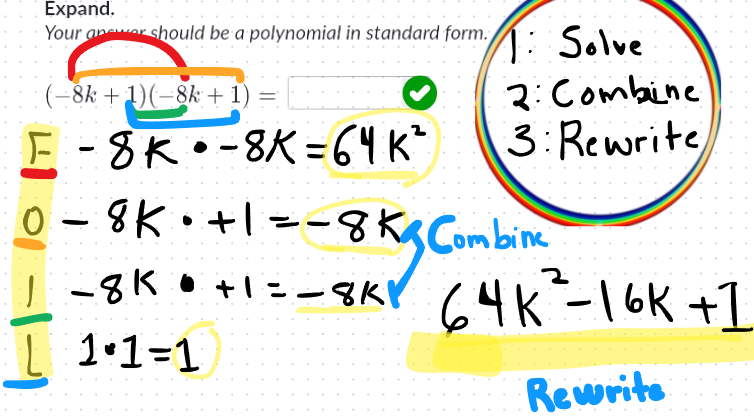 Expand.
Your answer should be a polynomial in standard form.
(−8k + 1)(−8k + 1) =
1: Solve
2: Combine
3: Rewrite
F -8K • -8K = 64K²
O -8K • +1 = -8K
Combine
I -8K • +1 = -8K
L 1•1=1
64K²-16K+1
Rewrite